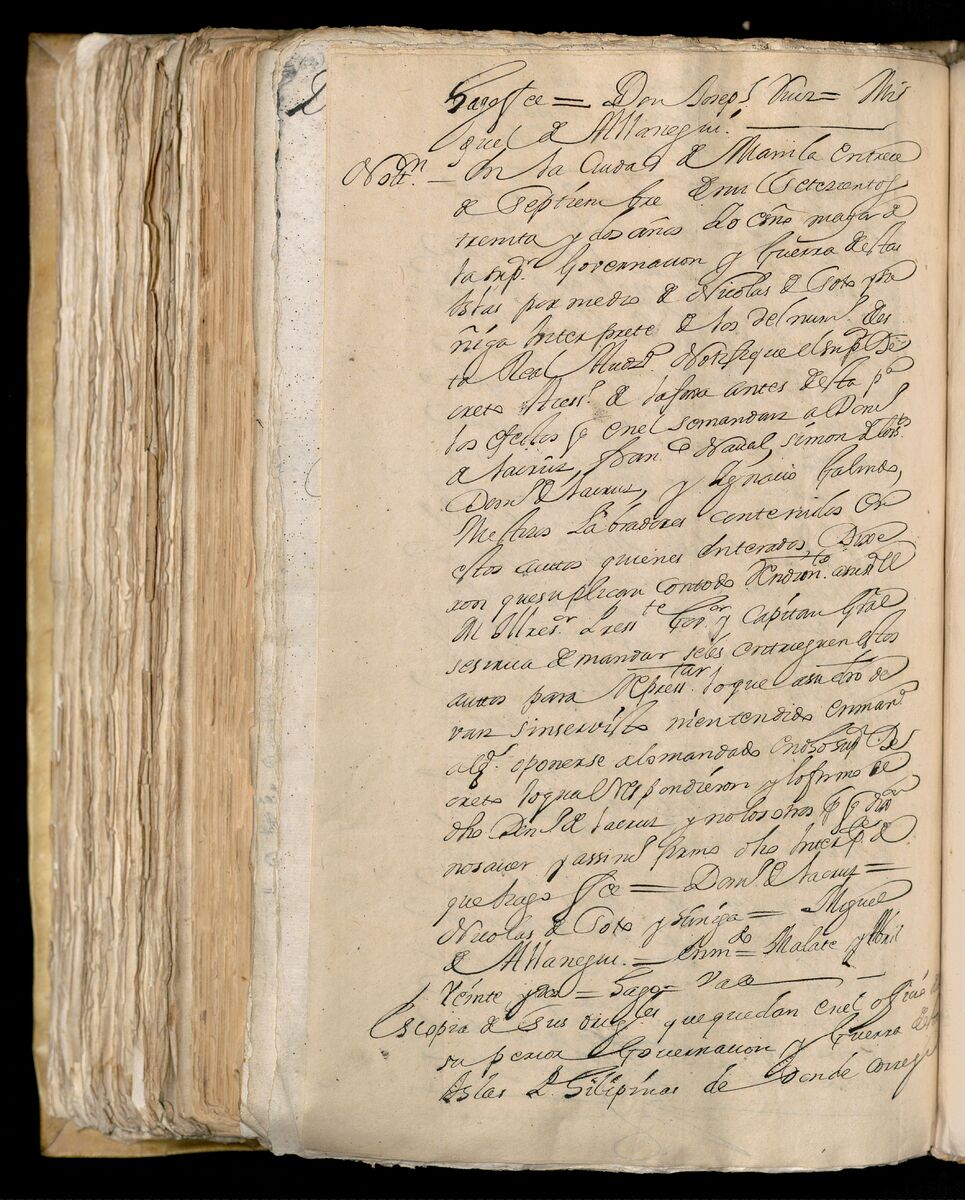 hago ffce = Don Joseph Ruiz = Mi
guel de Allanegui.
Nottn. – En la Ciudad de Manila en trece
de Septiembre de mil Setecientos
treinta y dos años Yo el Essno mayor de
la supr. Governacion y Guerra destas
Yslas por medio de Nicolas de Soto y Zu
ñiga Interprete de los del num. des
ta Real Audza. Notifique el supr. De
creto de la foxa antes desta pa
los efectos q en el semandan a Doml
de lacruz, Franco Naual, simon de los
Doml de lacruz, y Ygnacio Galindo,
Mestisos Labradores contenidos en
estos autos quienes Enterados, Dixe
ron que suplican con todo Rendimto
al Sr. Presste Govor. y Capitan Gral
se sirua de mandar se les entreguen estos
autos para Represtar lo que a su dro de
van sin ser visto ni entendido en mana
alga. oponerse a lo mandado en dho supr De
creto lo qual Respondieron y lo firmo el
dho Doml de lacruz y no los otros pq dixon
no sauer y assi ml firmo dho Interpte de
que hago ffce = Doml de lacruz =
Nicolas de Soto y Zuñiga = Miguel
de Allanegui. = enmdo = Malate y Abril
Veinte y dos = hago = Vale
Es copia de sus origles que quedan en el oficio
superior Governacion y Guerra destas
Yslas Philipinas de donde corregi